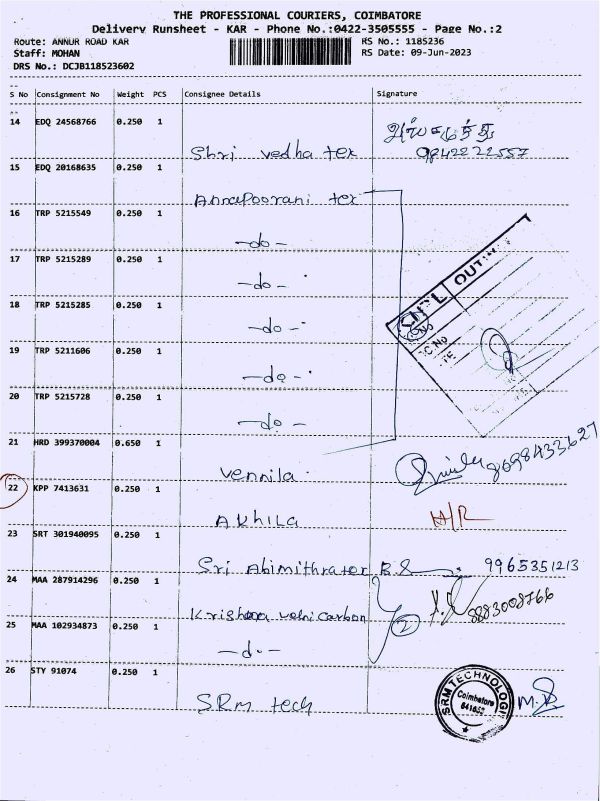 THE PROFESSIONAL COURIERS, COIMBATORE
Delivery Runsheet - KAR - Phone No.:0422-3505555 - Page No.:2
Route: ANNUR ROAD KAR RS No.: 1185236
Staff: MOHAN RS Date: 09-Jun-2023
DRS No.: DCJB118523602
S No Consignment No Weight PCS Consignee Details Signature
14 EDQ 24568766 0.250 1
Shri vedha tex 9842222557
15 EDQ 20168635 0.250 1
Annapoorani tex
16 TRP 5215549 0.250 1
-do-
17 TRP 5215289 0.250 1
-do-
18 TRP 5215285 0.250 1
-do-
19 TRP 5211606 0.250 1
-do-
20 TRP 5215728 0.250 1
-do-
21 HRD 399370004 0.650 1
Vennila 8698433627
22 KPP 7413631 0.250 1
Akhila H/R
23 SRT 301940095 0.250 1
Sri Abimithrator 9965351213
24 MAA 287914296 0.250 1
Krishna velni carbon 2 8883008766
25 MAA 102934873 0.250 1
-do-
26 STY 91074 0.250 1
SRM tech
SRM TECHNOLOGI
Coimbatore